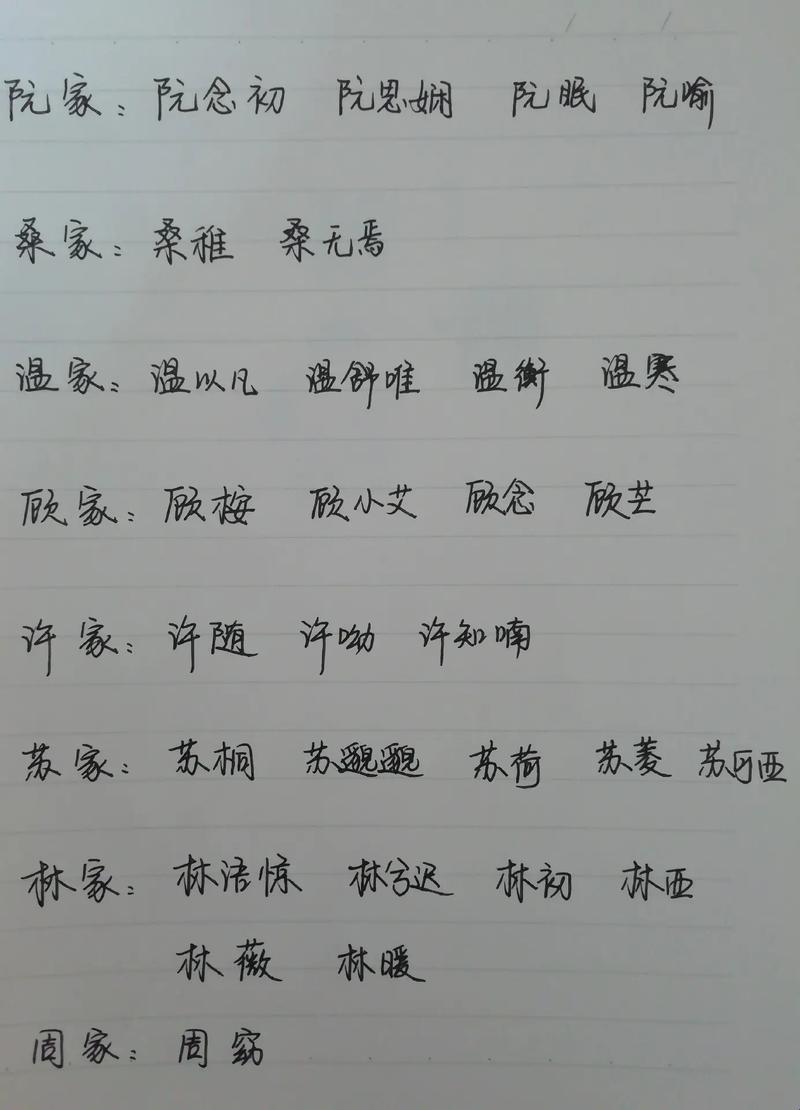 阮家：阮念初 阮思娴 阮眠 阮喻
桑家：桑稚 桑无焉
温家：温以凡 温舒唯 温衡 温寒
顾家：顾桉 顾小艾 顾念 顾芒
许家：许随 许呦 许知喃
苏家：苏桐 苏邈邈 苏荷 苏菱 苏阿西
林家：林语惊 林兮迟 林初 林西
林薇 林暖
周家：周窈